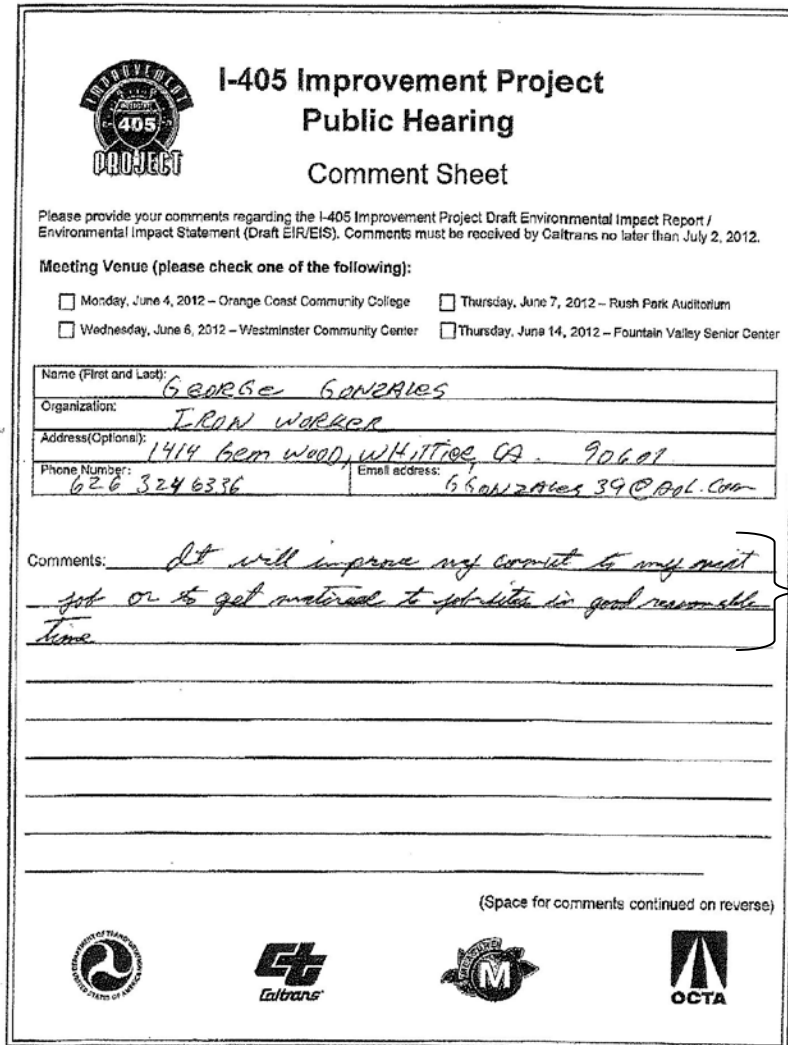 IMPROVEMENT
INTERSTATE
405
PROJECT
I-405 Improvement Project
Public Hearing
Comment Sheet
Please provide your comments regarding the I-405 Improvement Project Draft Environmental Impact Report /
Environmental Impact Statement (Draft EIR/EIS). Comments must be received by Caltrans no later than July 2, 2012.
Meeting Venue (please check one of the following):
Monday, June 4, 2012 – Orange Coast Community College
Thursday, June 7, 2012 – Rush Park Auditorium
Wednesday, June 6, 2012 – Westminster Community Center
Thursday, June 14, 2012 – Fountain Valley Senior Center
Name (First and Last): GEORGE GONZALES
Organization: IRON WORKER
Address(Optional): 1414 Gem WOOD, WHITTIER, CA. 90601
Phone Number: 626 324 6336
Email address: GGONZALES 39@AOL.Com
Comments: It will improve my commut to my next
job or to get matireal to jobsites in good reasonable
time
(Space for comments continued on reverse)
DEPARTMENT OF TRANSPORTATION
UNITED STATES OF AMERICA
Ct
Caltrans
MEASURE
M
OCTA